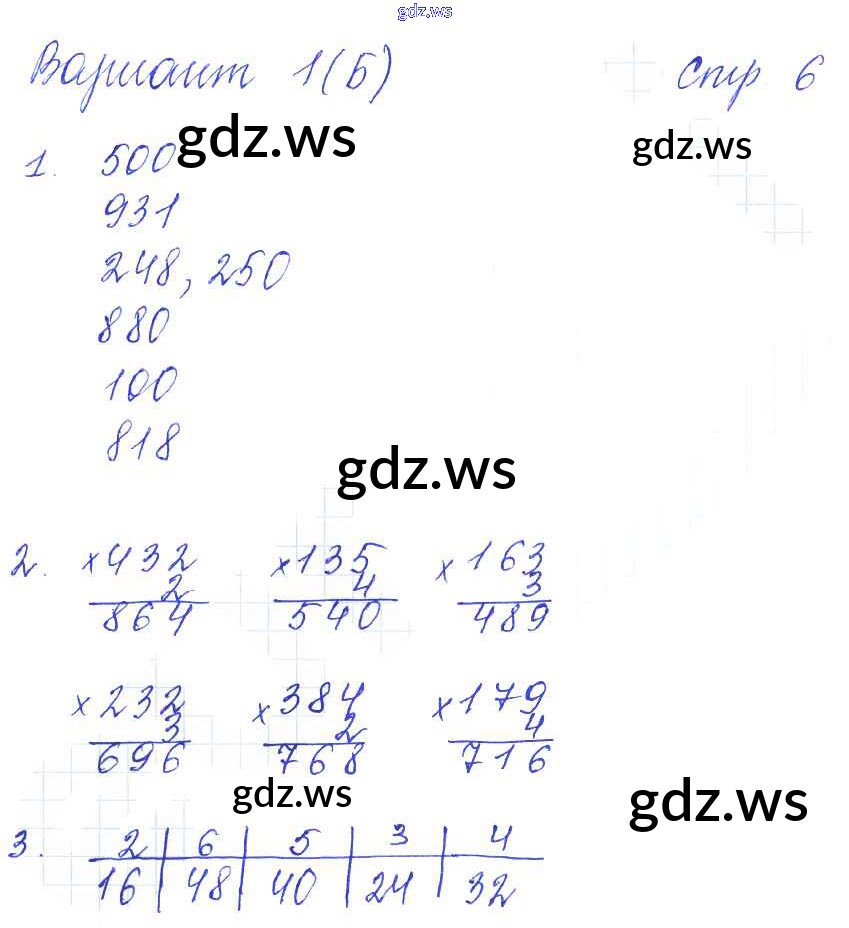 gdz.ws
Вариант 1(Б) Стр 6
gdz.ws gdz.ws
1. 500
931
248, 250
880
100
818
gdz.ws
2. ×432 ×135 ×163
2 4 3
864 540 489
×232 ×384 ×179
3 2 4
696 768 716
gdz.ws gdz.ws
3. 2 | 6 | 5 | 3 | 4
16 | 48 | 40 | 24 | 32